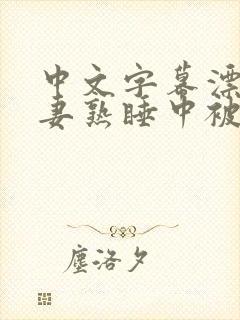 中文字幕漂
妻熟睡中被
塵洛夕